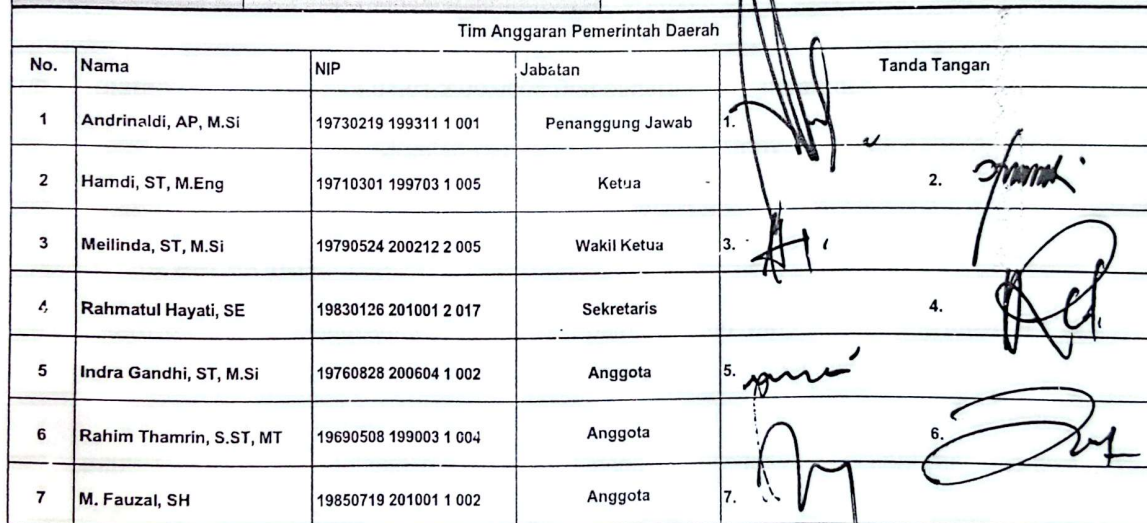 Tim Anggaran Pemerintah Daerah
No. Nama NIP Jabatan Tanda Tangan
1 Andrinaldi, AP, M.Si 19730219 199311 1 001 Penanggung Jawab 1.
2 Hamdi, ST, M.Eng 19710301 199703 1 005 Ketua 2.
3 Meilinda, ST, M.Si 19790524 200212 2 005 Wakil Ketua 3.
4 Rahmatul Hayati, SE 19830126 201001 2 017 Sekretaris 4.
5 Indra Gandhi, ST, M.Si 19760828 200604 1 002 Anggota 5.
6 Rahim Thamrin, S.ST, MT 19690508 199003 1 004 Anggota 6.
7 M. Fauzal, SH 19850719 201001 1 002 Anggota 7.